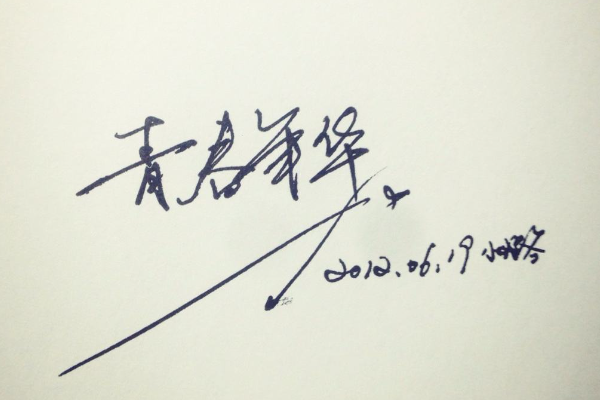 青春年华
2012.06.19 小路